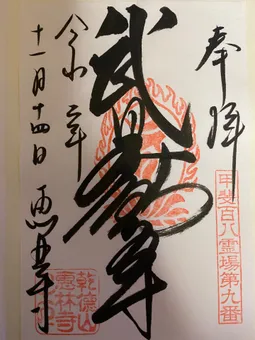 奉拝
甲斐百八霊場第九番
武田不動尊
令和二年
十一月十四日 恵林寺
乾徳山
惠林寺